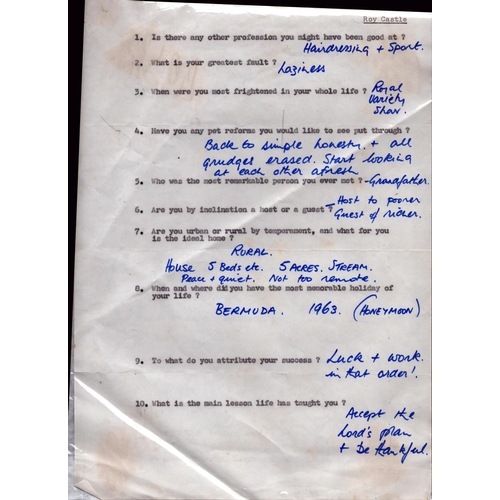 Roy Castle
1. Is there any other profession you might have been good at ?
Hairdressing + Sport.
2. What is your greatest fault ?
Laziness
3. When were you most frightened in your whole life ?
Royal
Variety
Show.
4. Have you any pet reforms you would like to see put through ?
Back to simple honesty. + all
grudges erased. Start looking
at each other afresh
5. Who was the most remarkable person you ever met ? - Grandfather.
6. Are you by inclination a host or a guest ? - Host to poorer
Guest of richer.
7. Are you urban or rural by temperament, and what for you
is the ideal home ?
RURAL.
House 5 Beds etc. 5 ACRES. STREAM.
Peace + quiet. Not too remote.
8. When and where did you have the most memorable holiday of
your life ?
BERMUDA. 1963. (HONEYMOON)
9. To what do you attribute your success ?
Luck + work.
in that order!
10. What is the main lesson life has taught you ?
Accept the
Lord's plan
+ be thankful.